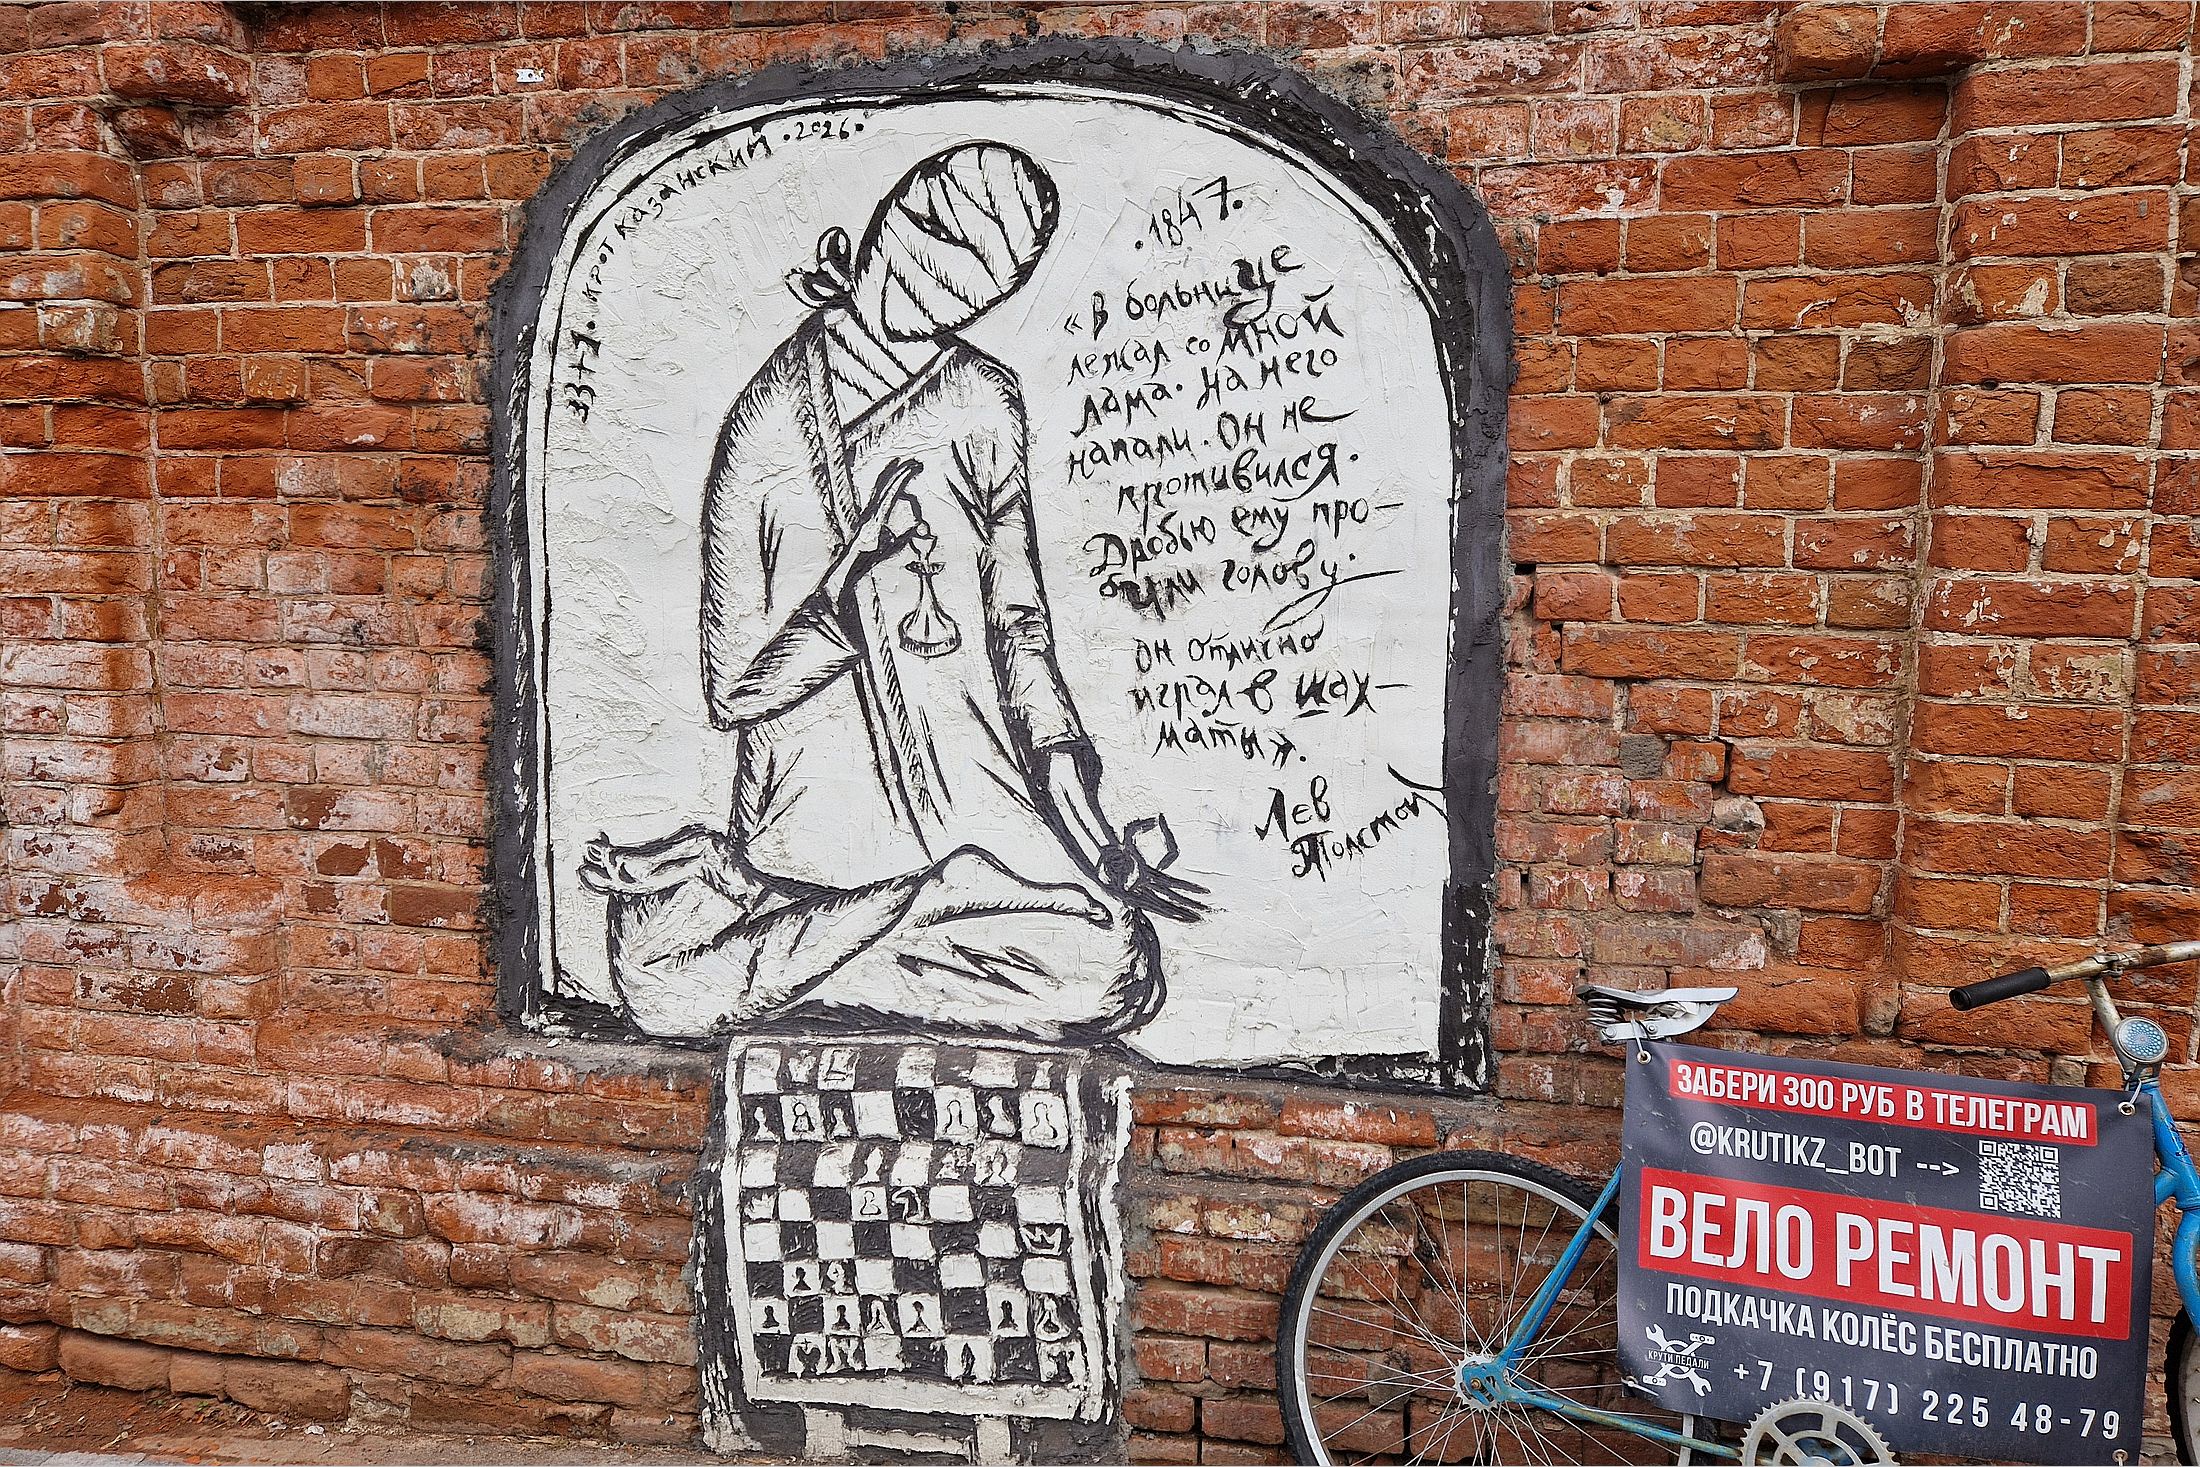 33+1. КРОТ КАЗАНСКИЙ .2026.
.1847.
«В больнице
лежал со мной
лама. На него
напали. Он не
противился.
Дробью ему про-
били голову.
он отлично
играл в шах-
маты».
Лев
Толстой
ЗАБЕРИ 300 РУБ В ТЕЛЕГРАМ
@KRUTIKZ_BOT -->
ВЕЛО РЕМОНТ
ПОДКАЧКА КОЛЁС БЕСПЛАТНО
КРУТИ ПЕДАЛИ
+7 (917) 225 48-79